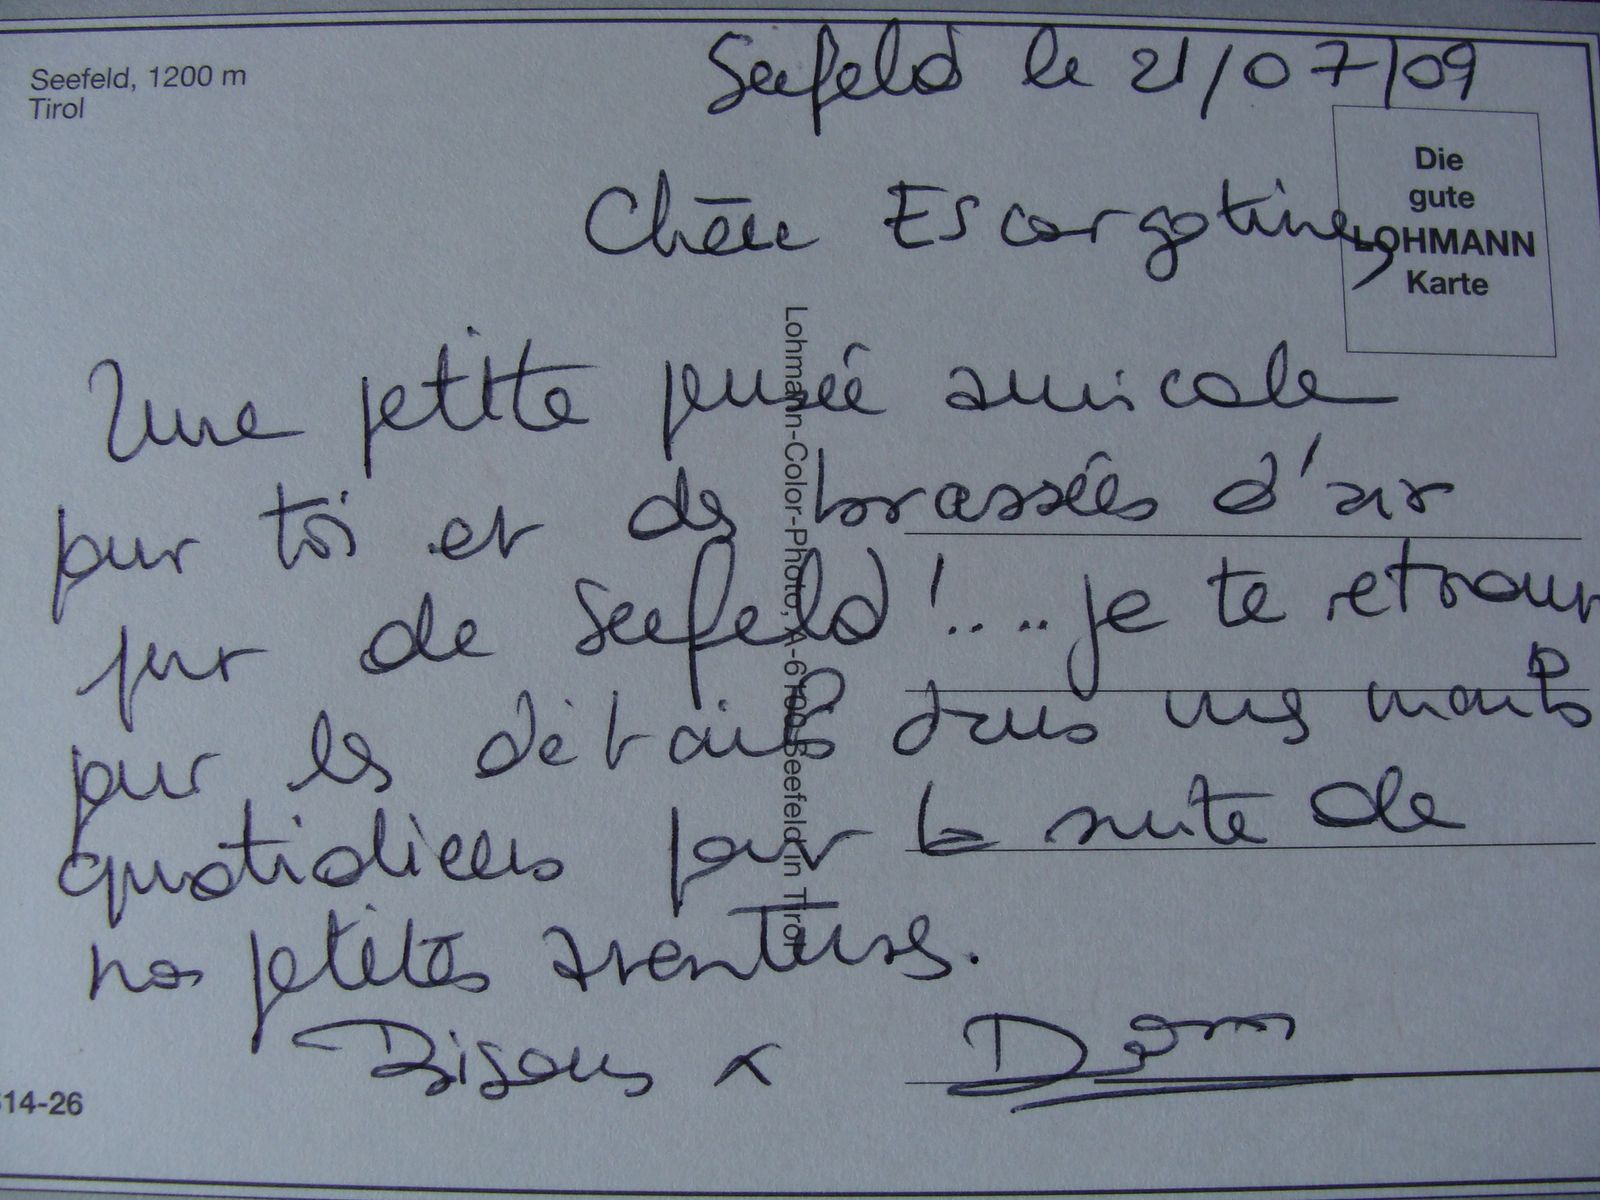 Seefeld, 1200 m
Tirol
Seefeld le 21/07/09
Die
gute
LOHMANN
Karte
Chère Escargotine,
Une petite pensée amicale
pour toi et des brassées d'air
pur de Seefeld !.... je te retrouve
pour les détails dans nos mails
quotidiens pour la suite de
nos petites aventures.
Bisous x Dom
Lohmann-Color-Photo, A-6100 Seefeld in Tirol
14-26